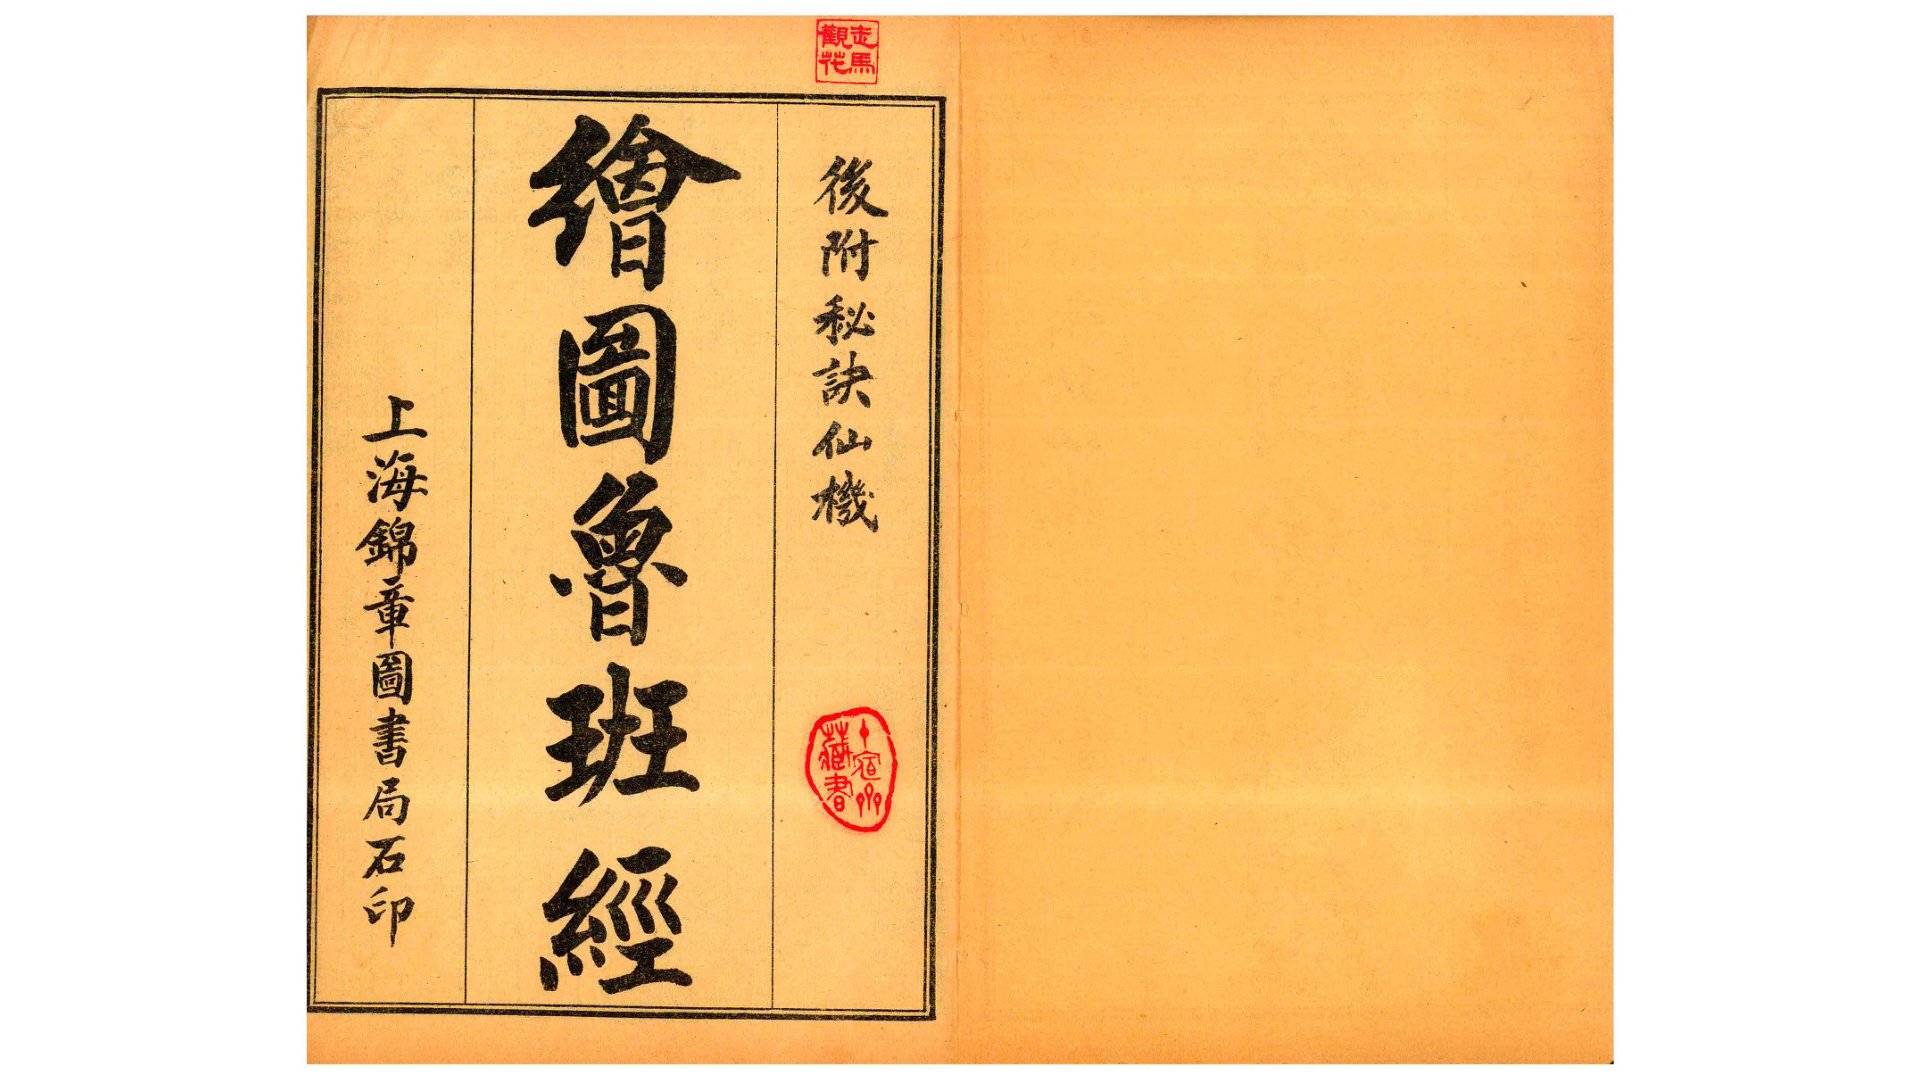 走馬
觀花
後附秘訣仙機
繪圖魯班經
上海錦章圖書局石印
藏書